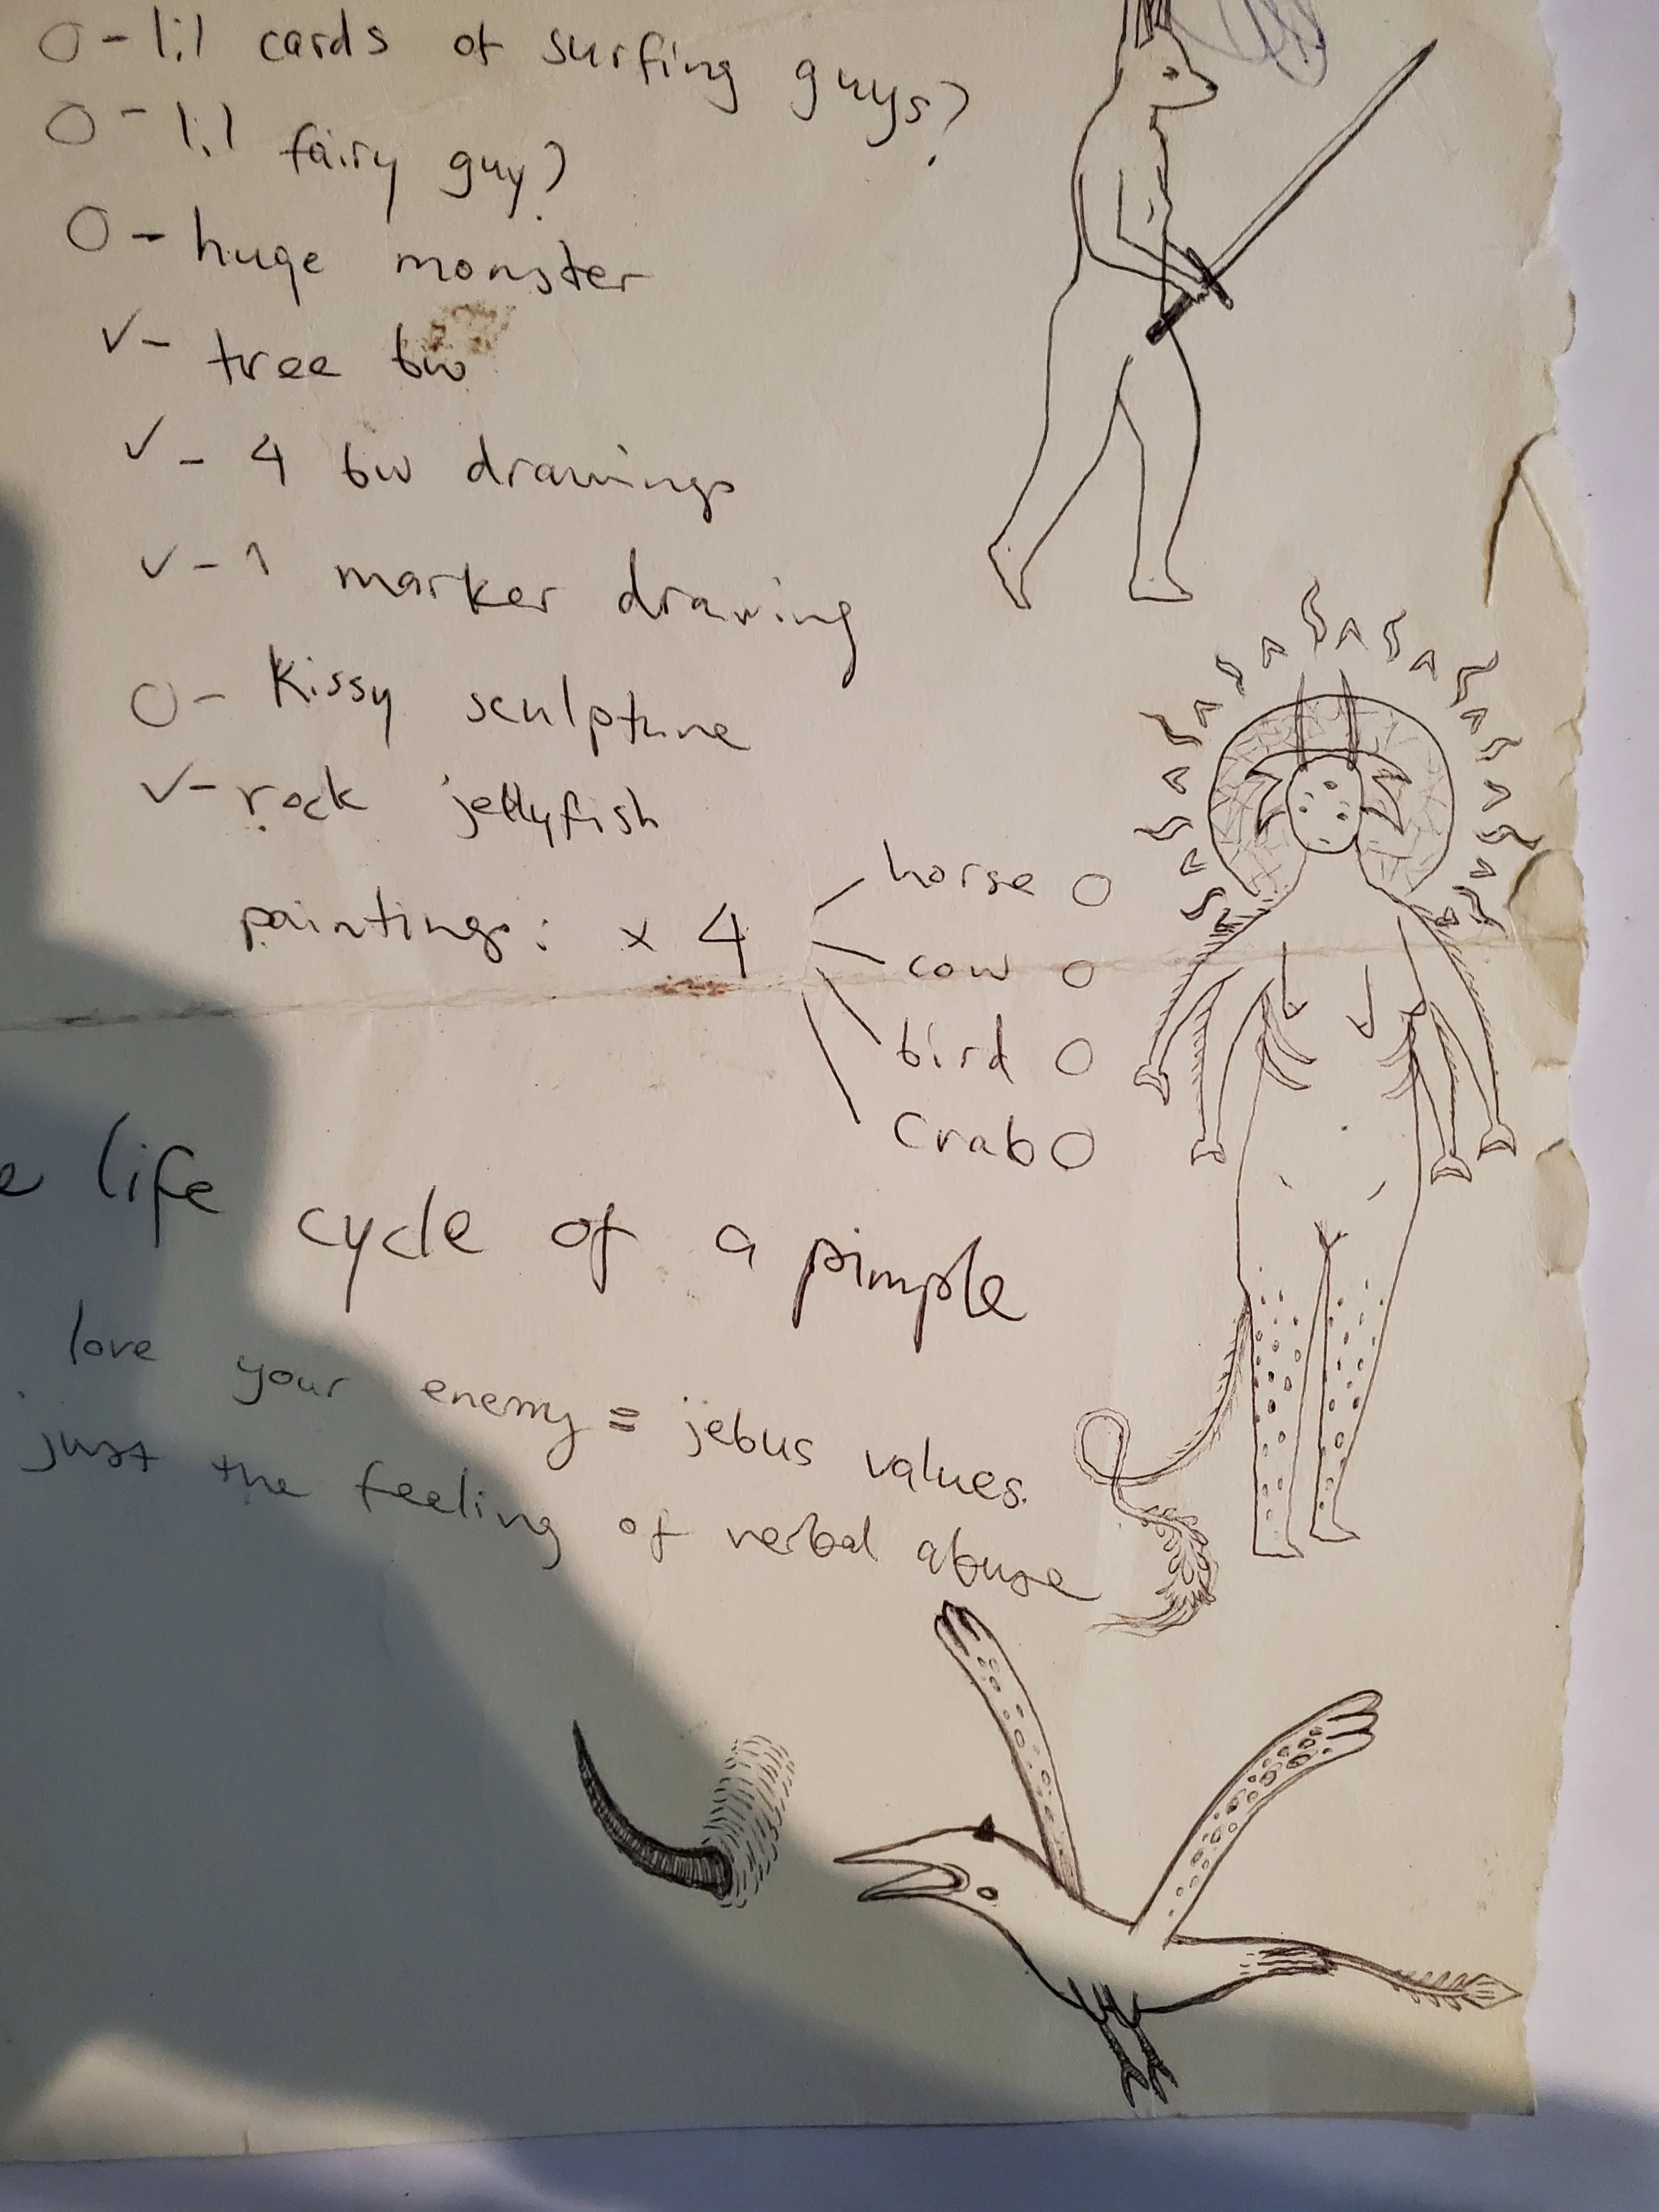 O - lil cards of surfing guys?
O - lil fairy guy?
O - huge monster
✓ - tree bw
✓ - 4 bw drawings
✓ - 1 marker drawing
O - Kissy sculpture
✓ - rock jellyfish
paintings: x 4
horse O
cow O
bird O
Crab O
e life cycle of a pimple
love your enemy = jebus values.
just the feeling of verbal abuse